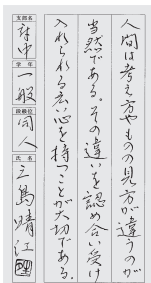 人間は考え方やものの見方が違うのが
当然である。その違いを認め合い受け
入れられる広い心を持つことが大切である。
支部名
府中
学年
一般
段級位
同人
氏名
三島晴江